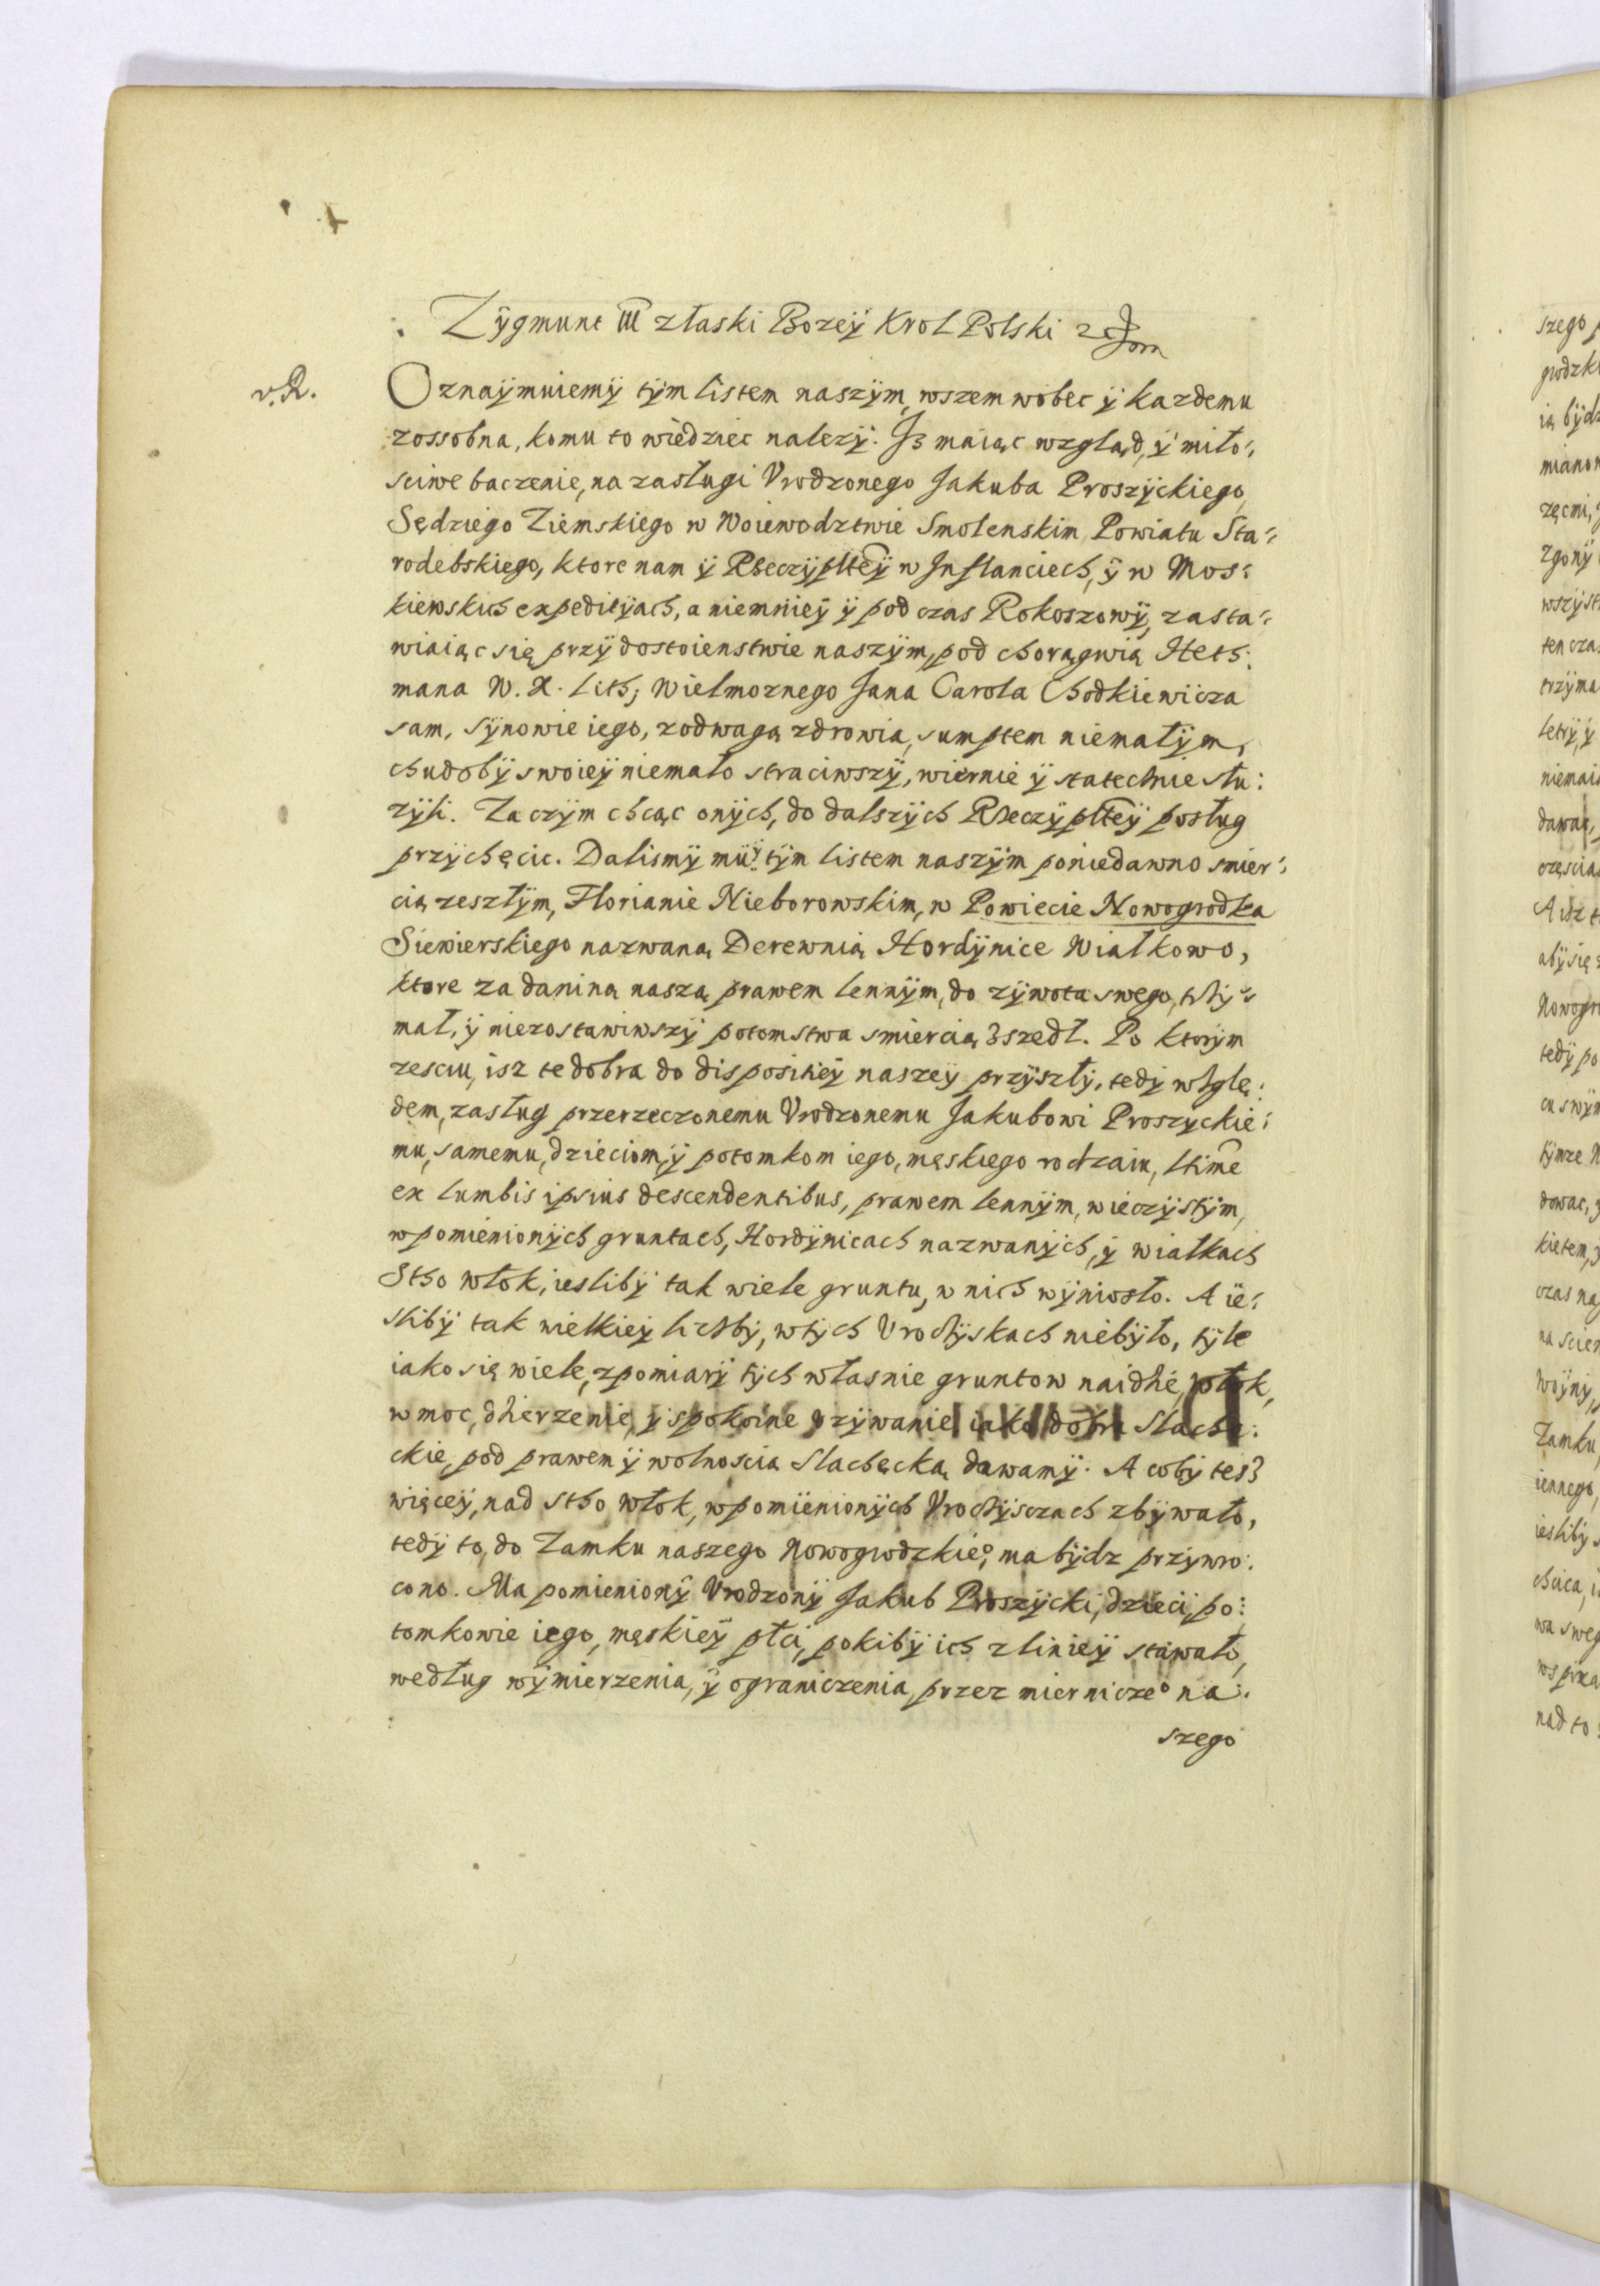 Zÿgmunt III z łaski Bozeÿ Krol Polski
v. R.
Oznaÿmuiemÿ tÿm listem naszÿm, wszem wobec ÿ kazdemu
zossobna, komu to wiedziec nalezÿ. Iz maiąc wzgląd, ÿ miło:
sciwe baczenie, na zasługi Vrodzonego Jakuba Proszÿckiego,
Sędziego Ziemskiego w Woiewodztwie Smolenskim Powiatu Sta:
rodebskiego, ktore nam ÿ Rzeczÿplteÿ w Inflanciech, ÿ w Mos:
kiewskich expeditÿach, a niemnieÿ ÿ pod czas Rokoszowÿ, zasta:
wiaiąc się przÿ dostoienstwie naszÿm, pod chorągwią Heth:
mana W. X. Lith; Wielmoznego Jana Carola Chodkiewicza
sam, sÿnowie iego, z odwagą zdrowia, sumptem niemałÿm,
chudobÿ swoieÿ niemało straciwszÿ, wiernie ÿ statecznie słu:
zÿli. Zaczÿm chcąc onÿch, do dalszÿch Rzeczÿplteÿ posług
przÿchęcic. Dalismÿ mu ÿ tÿm listem naszÿm po niedawno smier:
cią zeszłÿm, Florianie Nieborowskim, w Powiecie Nowogrodka
Siewierskiego nazwaną Derewnią Hordÿnice Wiałkowo,
ktore za daniną naszą prawem lennÿm, do zÿwota swego, trzÿ:
mał, ÿ niezostawiwszÿ potomstwa smiercią zszedł. Po ktorÿm
zesciu, isz te dobra do dispositieÿ naszeÿ przÿszłÿ, tedÿ wzglę:
dem, zasług przerzeczonemu Vrodzonemu Jakubowi Proszyckie:
mu, samemu, dzieciom, ÿ potomkom iego, męskiego rodzaiu, ltime
ex lumbis ipsius descendentibus, prawem lennÿm, wieczÿstÿm,
w pomienionÿch gruntach, Hordÿnicach nazwanÿch, ÿ wiałkach
Stho włok, ieslibÿ tak wiele gruntu, w nich wÿniosło. A ie:
slibÿ tak wielkieÿ liczbÿ, w tÿch Vroczÿskach niebÿło, tÿle
iako się wiele, z pomiarÿ tÿch własnie gruntow naidzie, włok,
w moc, dzierzenie, ÿ spokoine vzÿwanie iako dobra Slache:
ckie, pod prawem ÿ wolnoscią Slachęcką dawamÿ. A cobÿ tesz
więceÿ, nad stho włok, w pomienionÿch Vroczÿsczach zbÿwało,
tedÿ to, do Zamku naszego Nowogrodzkieo, ma bÿdz przÿwro:
cono. Ma pomienionÿ Vrodzonÿ Jakub Proszÿcki, dzieci, po:
tomkowie iego, męskieÿ płci, pokibÿ ich z linieÿ stawało,
według wÿmierzenia, ÿ ograniczenia, przez mierniczeo na:
szego